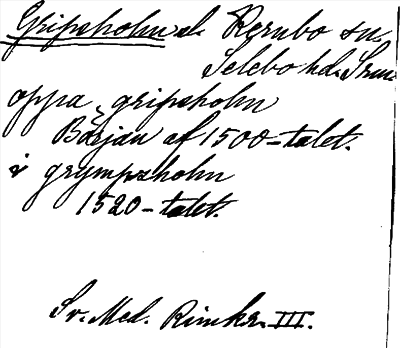 Gripsholm sl. Kernbo sn.
Selebo hd. Srm.
oppa gripsholm
Början af 1500-talet.
i grympsholm
1520-talet.
Sv. Med. Rimkr. III.